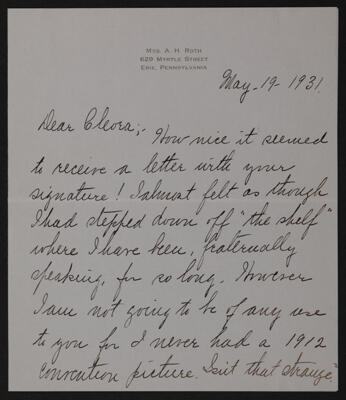 Mrs. A. H. Roth
629 Myrtle Street
Erie, Pennsylvania
May-19-1931.
Dear Cleora;-
How nice it seemed
to receive a letter with your
signature! I almost felt as though
I had stepped down off "the shelf"
where I have been, fraternally
speaking, for so long. However
I am not going to be of any use
to you for I never had a 1912
convention picture. Isn't that strange?